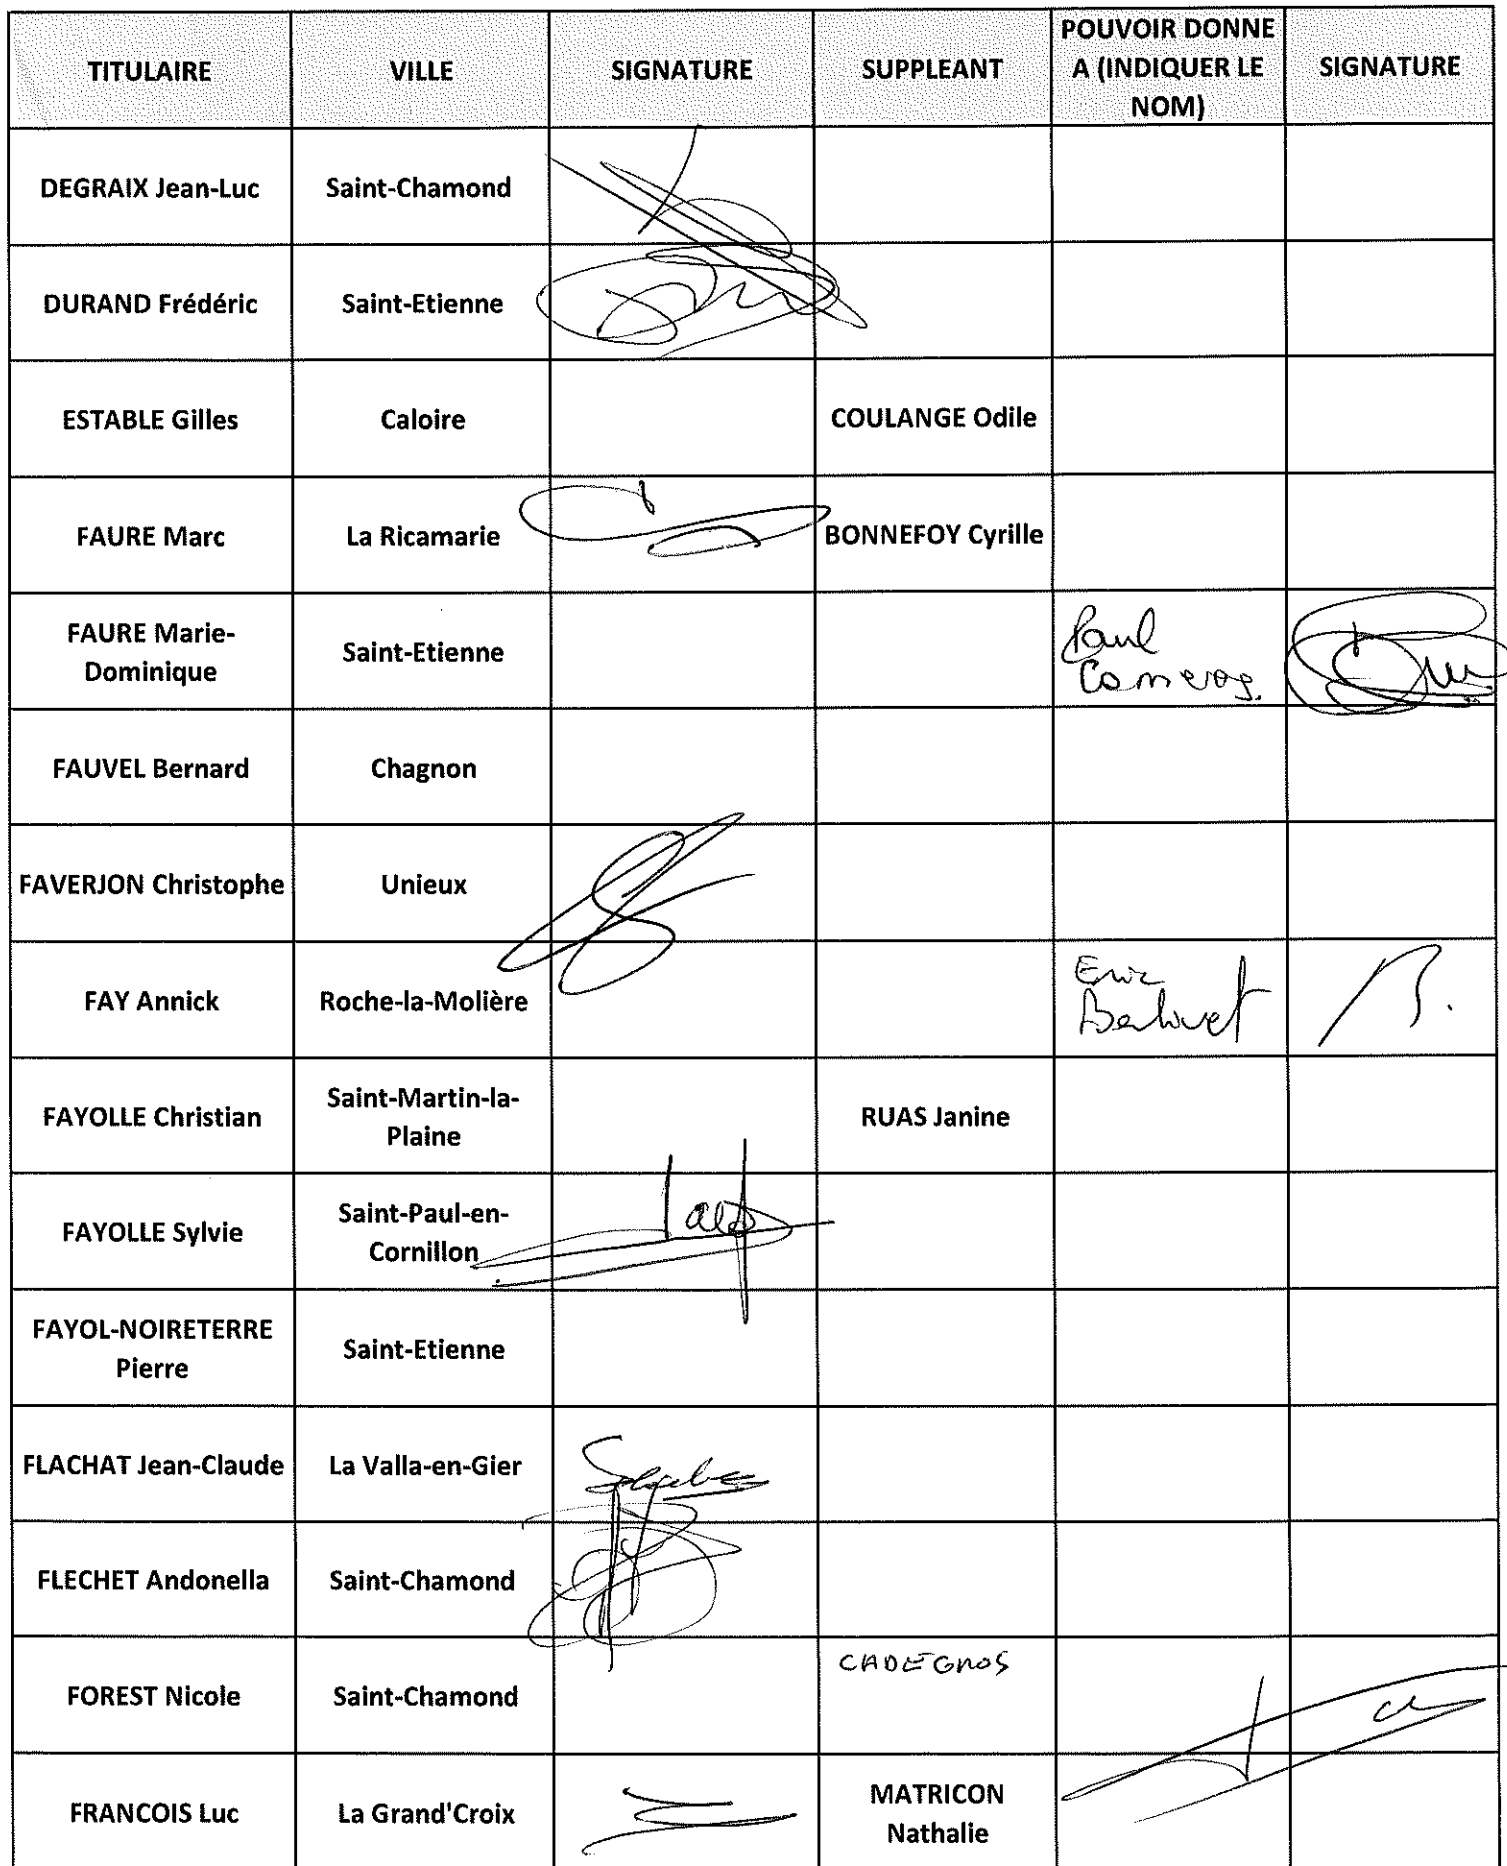 TITULAIRE VILLE SIGNATURE SUPPLEANT POUVOIR DONNE A (INDIQUER LE NOM) SIGNATURE
DEGRAIX Jean-Luc Saint-Chamond
DURAND Frédéric Saint-Etienne
ESTABLE Gilles Caloire COULANGE Odile
FAURE Marc La Ricamarie BONNEFOY Cyrille
FAURE Marie-
Dominique Saint-Etienne Paul
FAUVEL Bernard Chagnon
FAVERJON Christophe Unieux
FAY Annick Roche-la-Molière Eric
FAYOLLE Christian Saint-Martin-la-
Plaine RUAS Janine
FAYOLLE Sylvie Saint-Paul-en-
Cornillon
FAYOL-NOIRETERRE
Pierre Saint-Etienne
FLACHAT Jean-Claude La Valla-en-Gier
FLECHET Andonella Saint-Chamond
FOREST Nicole Saint-Chamond CADEGROS
FRANCOIS Luc La Grand'Croix MATRICON
Nathalie